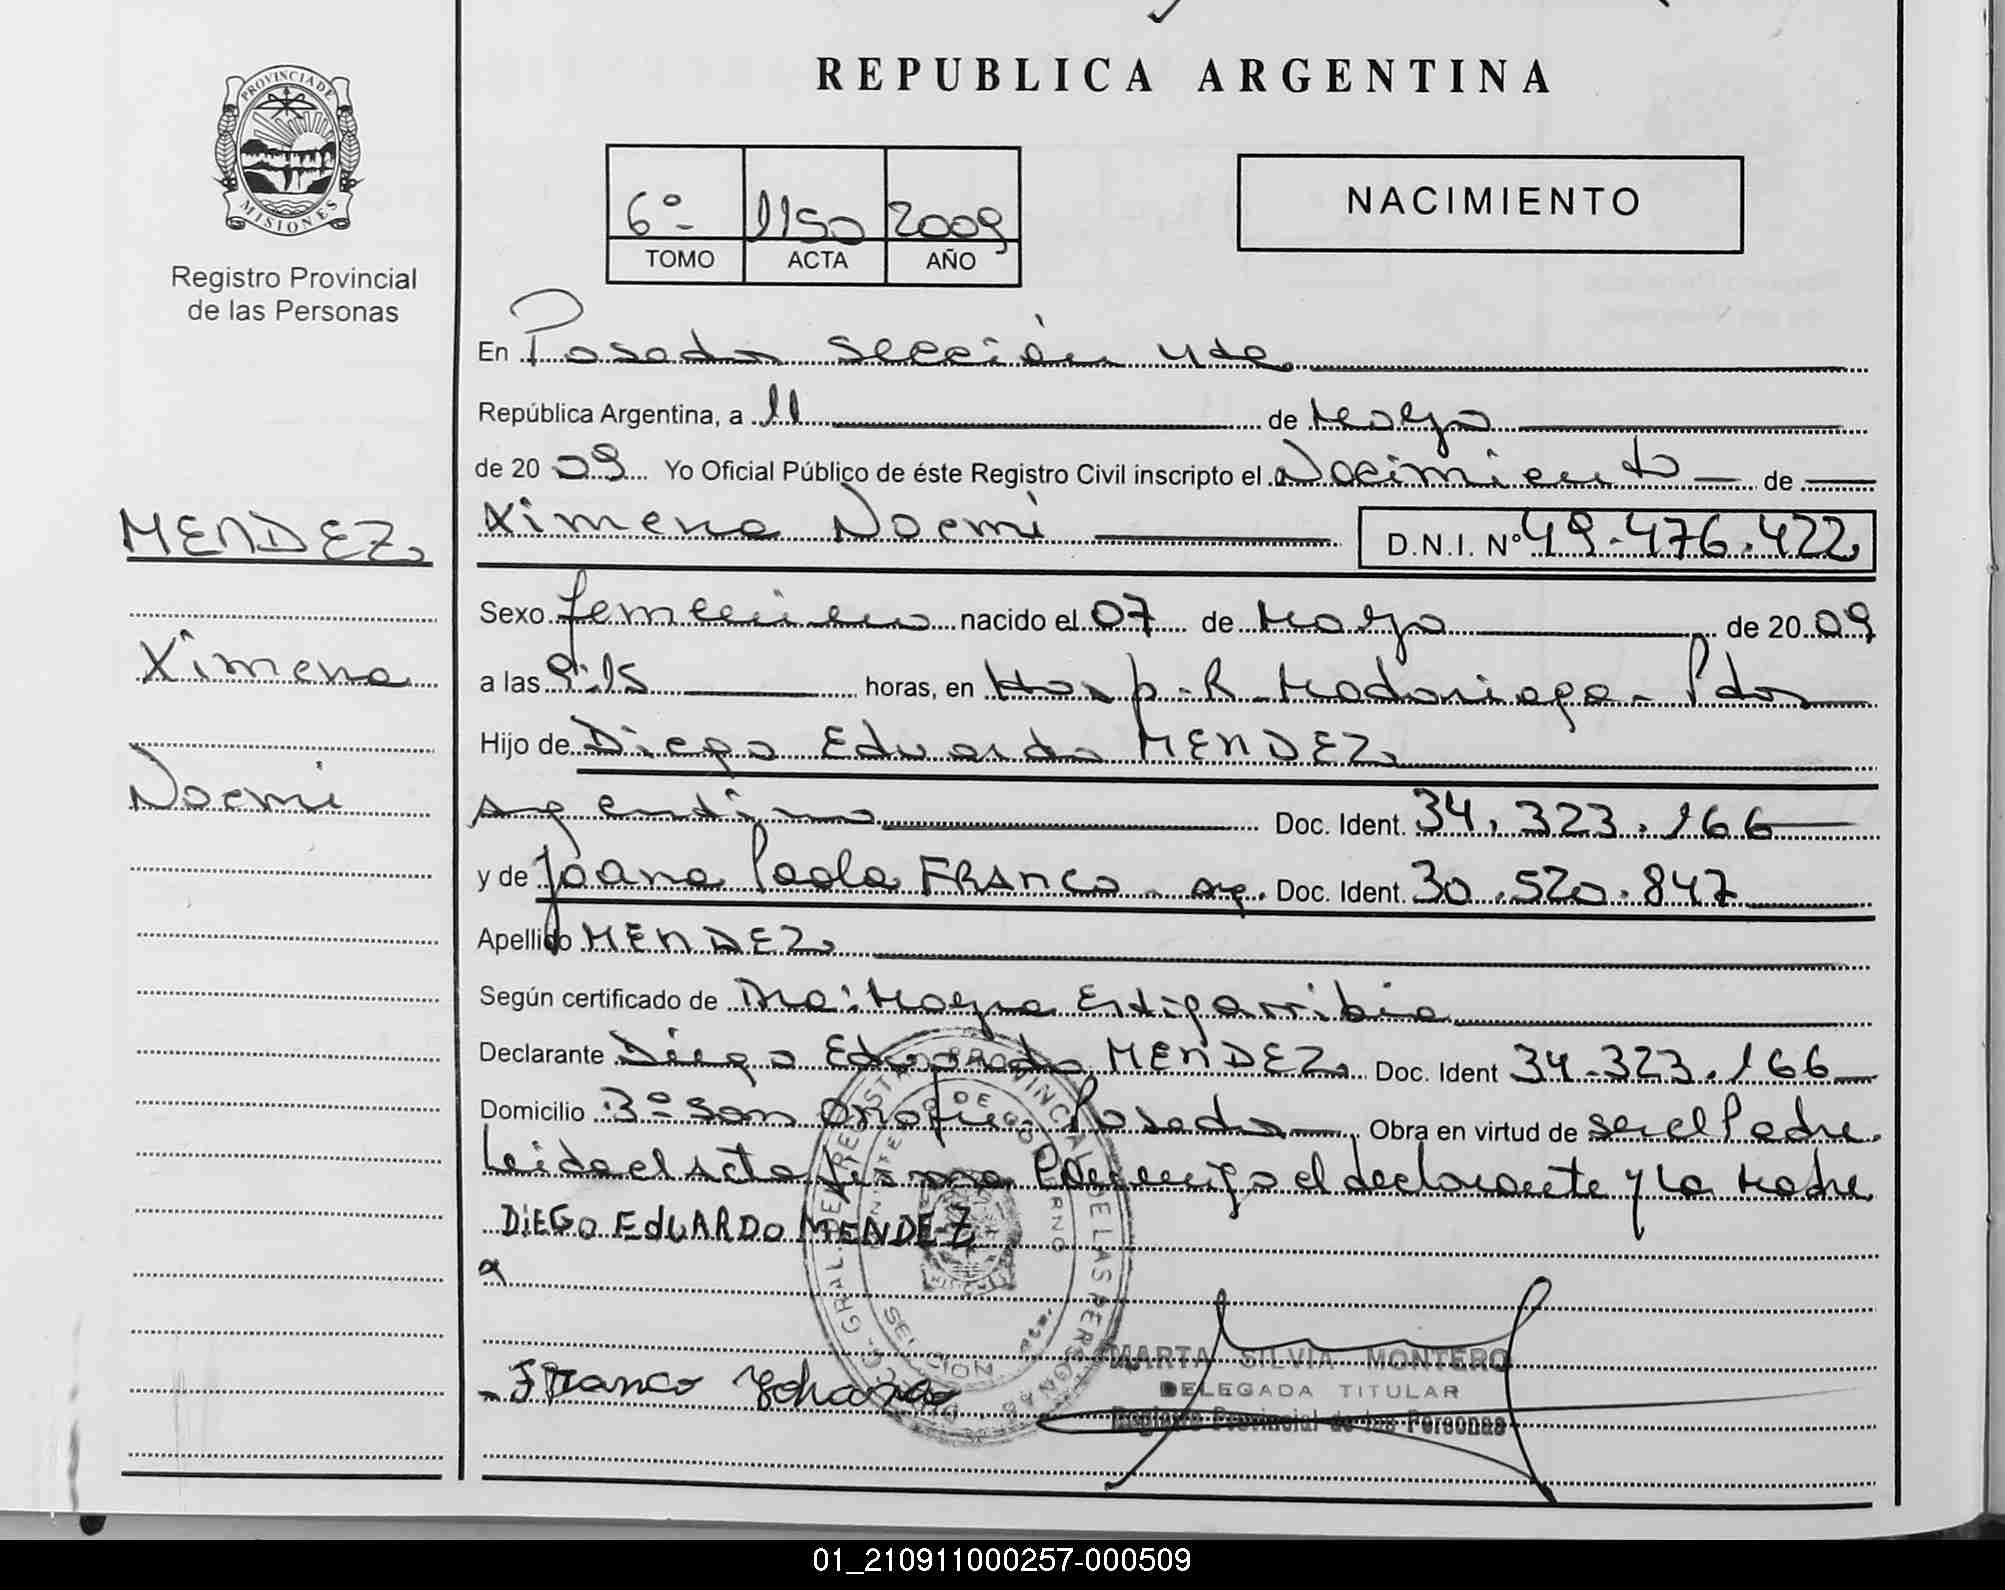 PROVINCIA DE
MISIONES
Registro Provincial
de las Personas
MENDEZ
Ximena
Noemi
REPUBLICA ARGENTINA
6º 1150 2009
TOMO ACTA AÑO
NACIMIENTO
En Posadas sección 4ta
República Argentina, a 11 de Marzo
de 20 09 Yo Oficial Público de éste Registro Civil inscripto el Nacimiento de
Ximena Noemi D.N.I. Nº 49.476.422
Sexo femenino nacido el 07 de Marzo de 20 09
a las 9:15 horas, en Hosp. R. Madariaga - Pdas
Hijo de Diego Eduardo MENDEZ
argentino Doc. Ident. 34.323.166
y de Joana Paola FRANCO - arg. Doc. Ident. 30.520.847
Apellido MENDEZ
Según certificado de Dra: Mayra Estigarribia
Declarante Diego Eduardo MENDEZ Doc. Ident 34.323.166
Domicilio Bº San Onofre - Posadas Obra en virtud de ser el Padre
Leida el Acta firma conmigo el declarante y la Madre
DiEGO EdUARDO MENDEZ
Franco Yohana
MARTA SILVIA MONTERO
DELEGADA TITULAR
Registro Provincial de las Personas
01_210911000257-000509